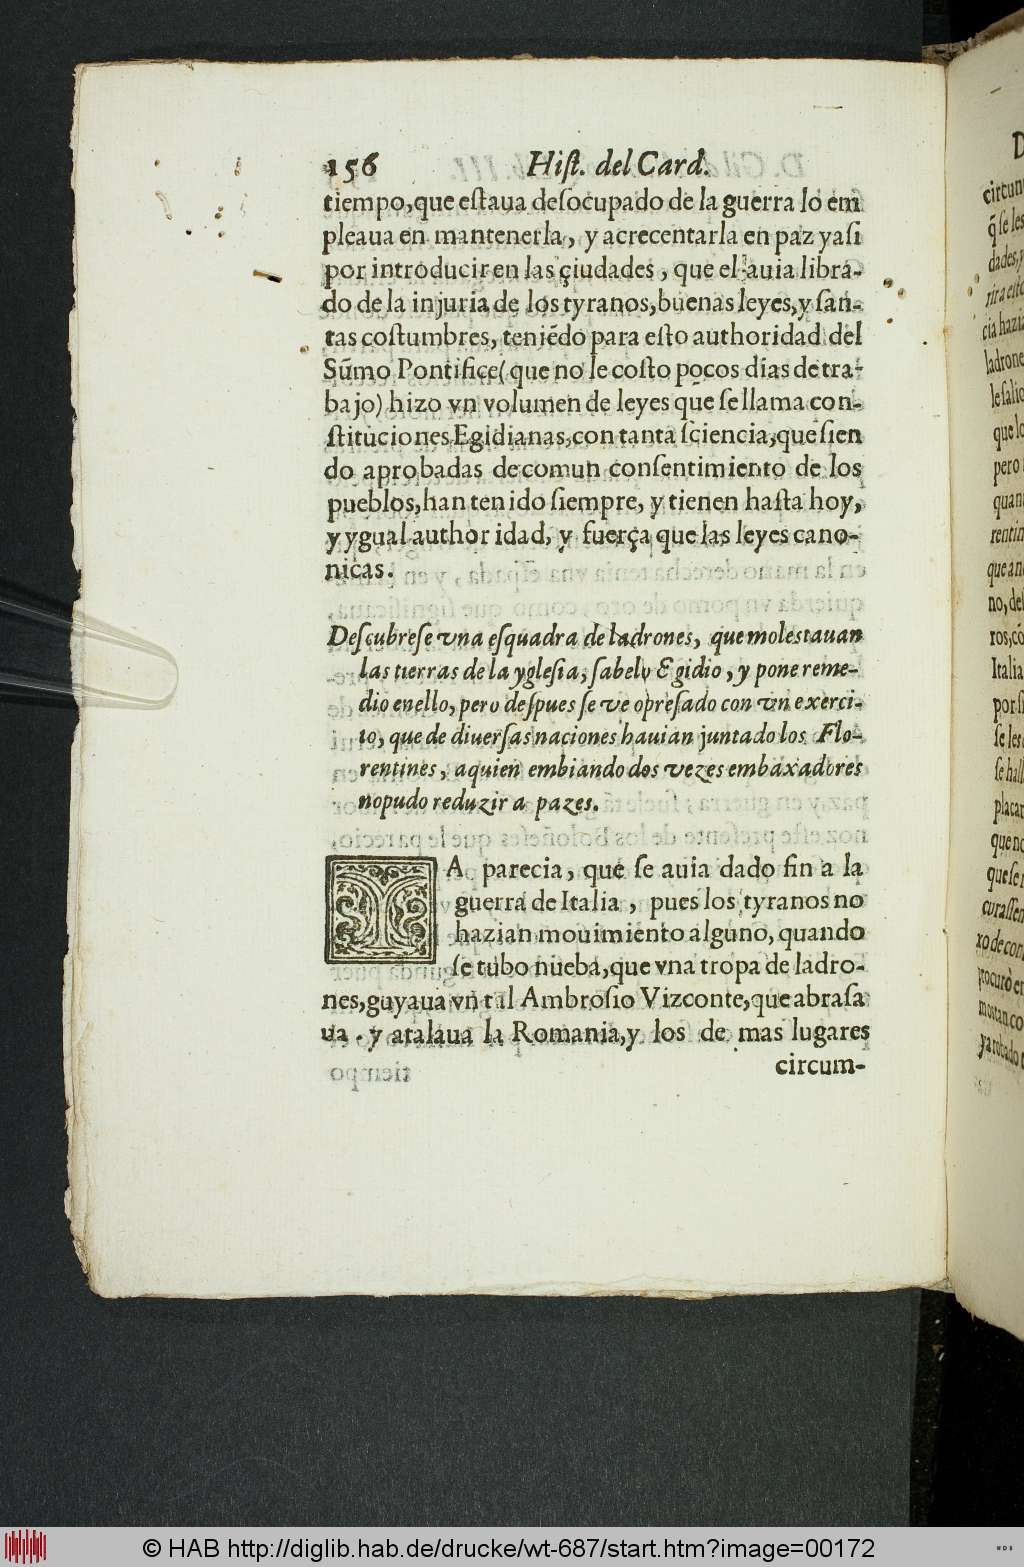 156 Hiſt. del Card.
tiempo, que eſtaua deſocupado de la guerra lo em
pleaua en mantenerla, y acrecentarla en paz yaſi
por introducir en las çiudades, que el auia libra-
do de la injuria de los tyranos, buenas leyes, y ſan-
tas coſtumbres, teniẽdo para eſto authoridad del
Sũmo Pontifice (que no le coſto pocos dias de tra-
bajo) hizo vn volumen de leyes que ſe llama con-
ſtituciones Egidianas, con tanta ſciencia, que ſien
do aprobadas de comun conſentimiento de los
pueblos, han tenido ſiempre, y tienen haſta hoy,
y ygual author idad, y fuerça que las leyes cano-
nicas.
Deſcubreſe vna eſquadra de ladrones, que moleſtauan
las tierras de la ygleſia; ſabelo Egidio, y pone reme-
dio enello, pero deſpues ſe ve opreſado con vn exerci-
to, que de diuerſas naciones hauian juntado los Flo-
rentines, aquien embiando dos vezes embaxadores
nopudo reduzir a pazes.
YA parecia, que ſe auia dado fin a la
guerra de Italia, pues los tyranos no
hazian mouimiento alguno, quando
ſe tubo nueba, que vna tropa de ladro-
nes, guyaua vn tal Ambroſio Vizconte, que abraſa
ua. y atalaua la Romania, y los de mas lugares
circum-
D
circun
q̃ ſe les
dades, y
cia hazia
ladrone
le ſalio
que lo
pero
quan
rentin
que an
no, deſ
ros, cõ
Italia
por ſi
ſe les
ſe hall
placar
que no
que ſe
curaſſen
xo de con
procurò en
© HAB http://diglib.hab.de/drucke/wt-687/start.htm?image=00172